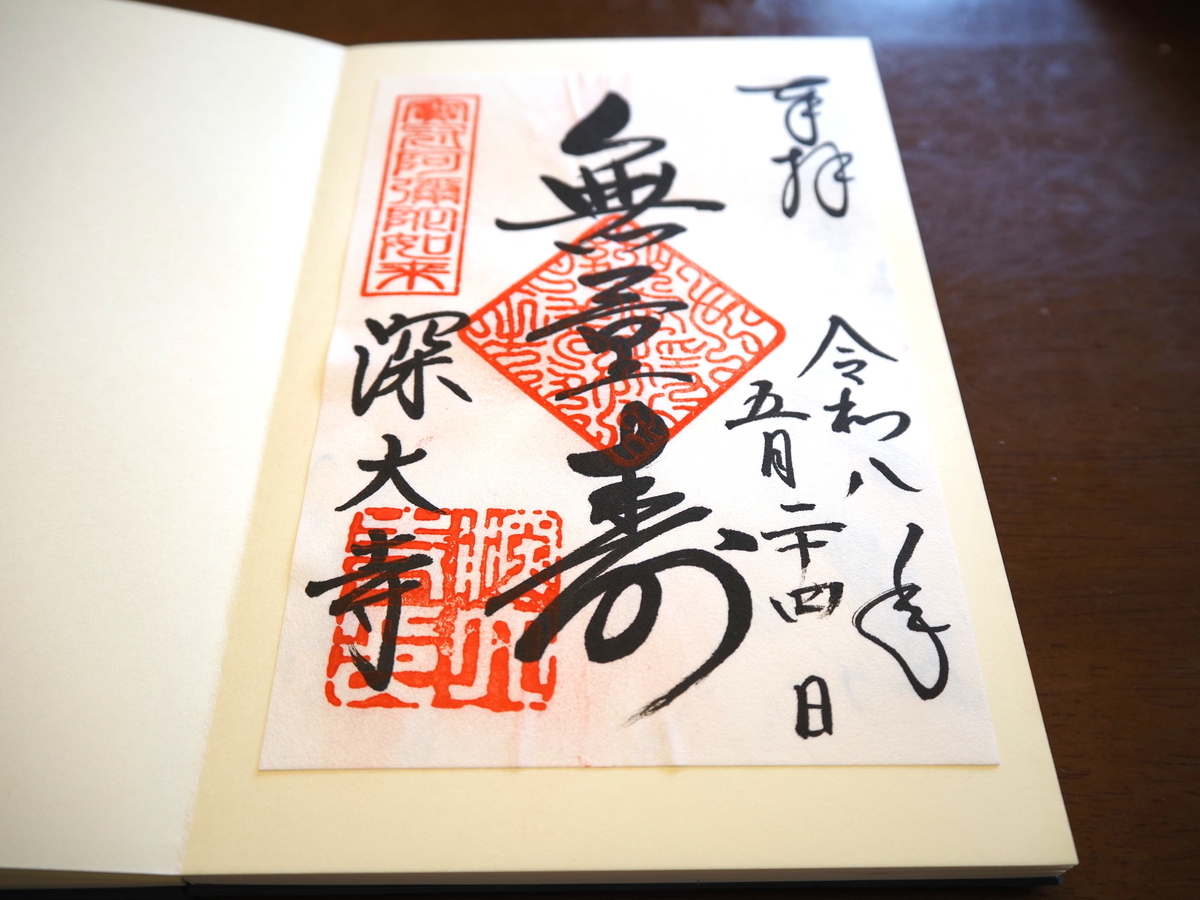 奉拝
令和八年
五月二十四日
無量寿
寳冠阿彌陀如来
深大寺